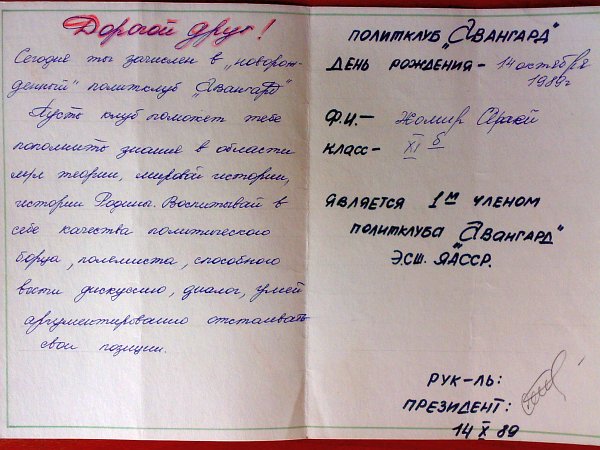 Дорогой друг!
Сегодня ты зачислен в „новорож-
денный" политклуб „Авангард"
Пусть клуб поможет тебе
пополнить знания в области
мрл теории, мировой истории,
истории Родины. Воспитывай в
себе качества политического
борца, полемиста, способного
вести дискуссию, диалог, умей
аргументированно отстаивать
свои позиции.
ПОЛИТКЛУБ „АВАНГАРД"
ДЕНЬ РОЖДЕНИЯ - 14 октября
1989г
Ф.И. -
КЛАСС - XI б
ЯВЛЯЕТСЯ 1м ЧЛЕНОМ
ПОЛИТКЛУБА „АВАНГАРД"
Э.СШ. ЯАССР.
РУК-ЛЬ:
ПРЕЗИДЕНТ:
14 X 89